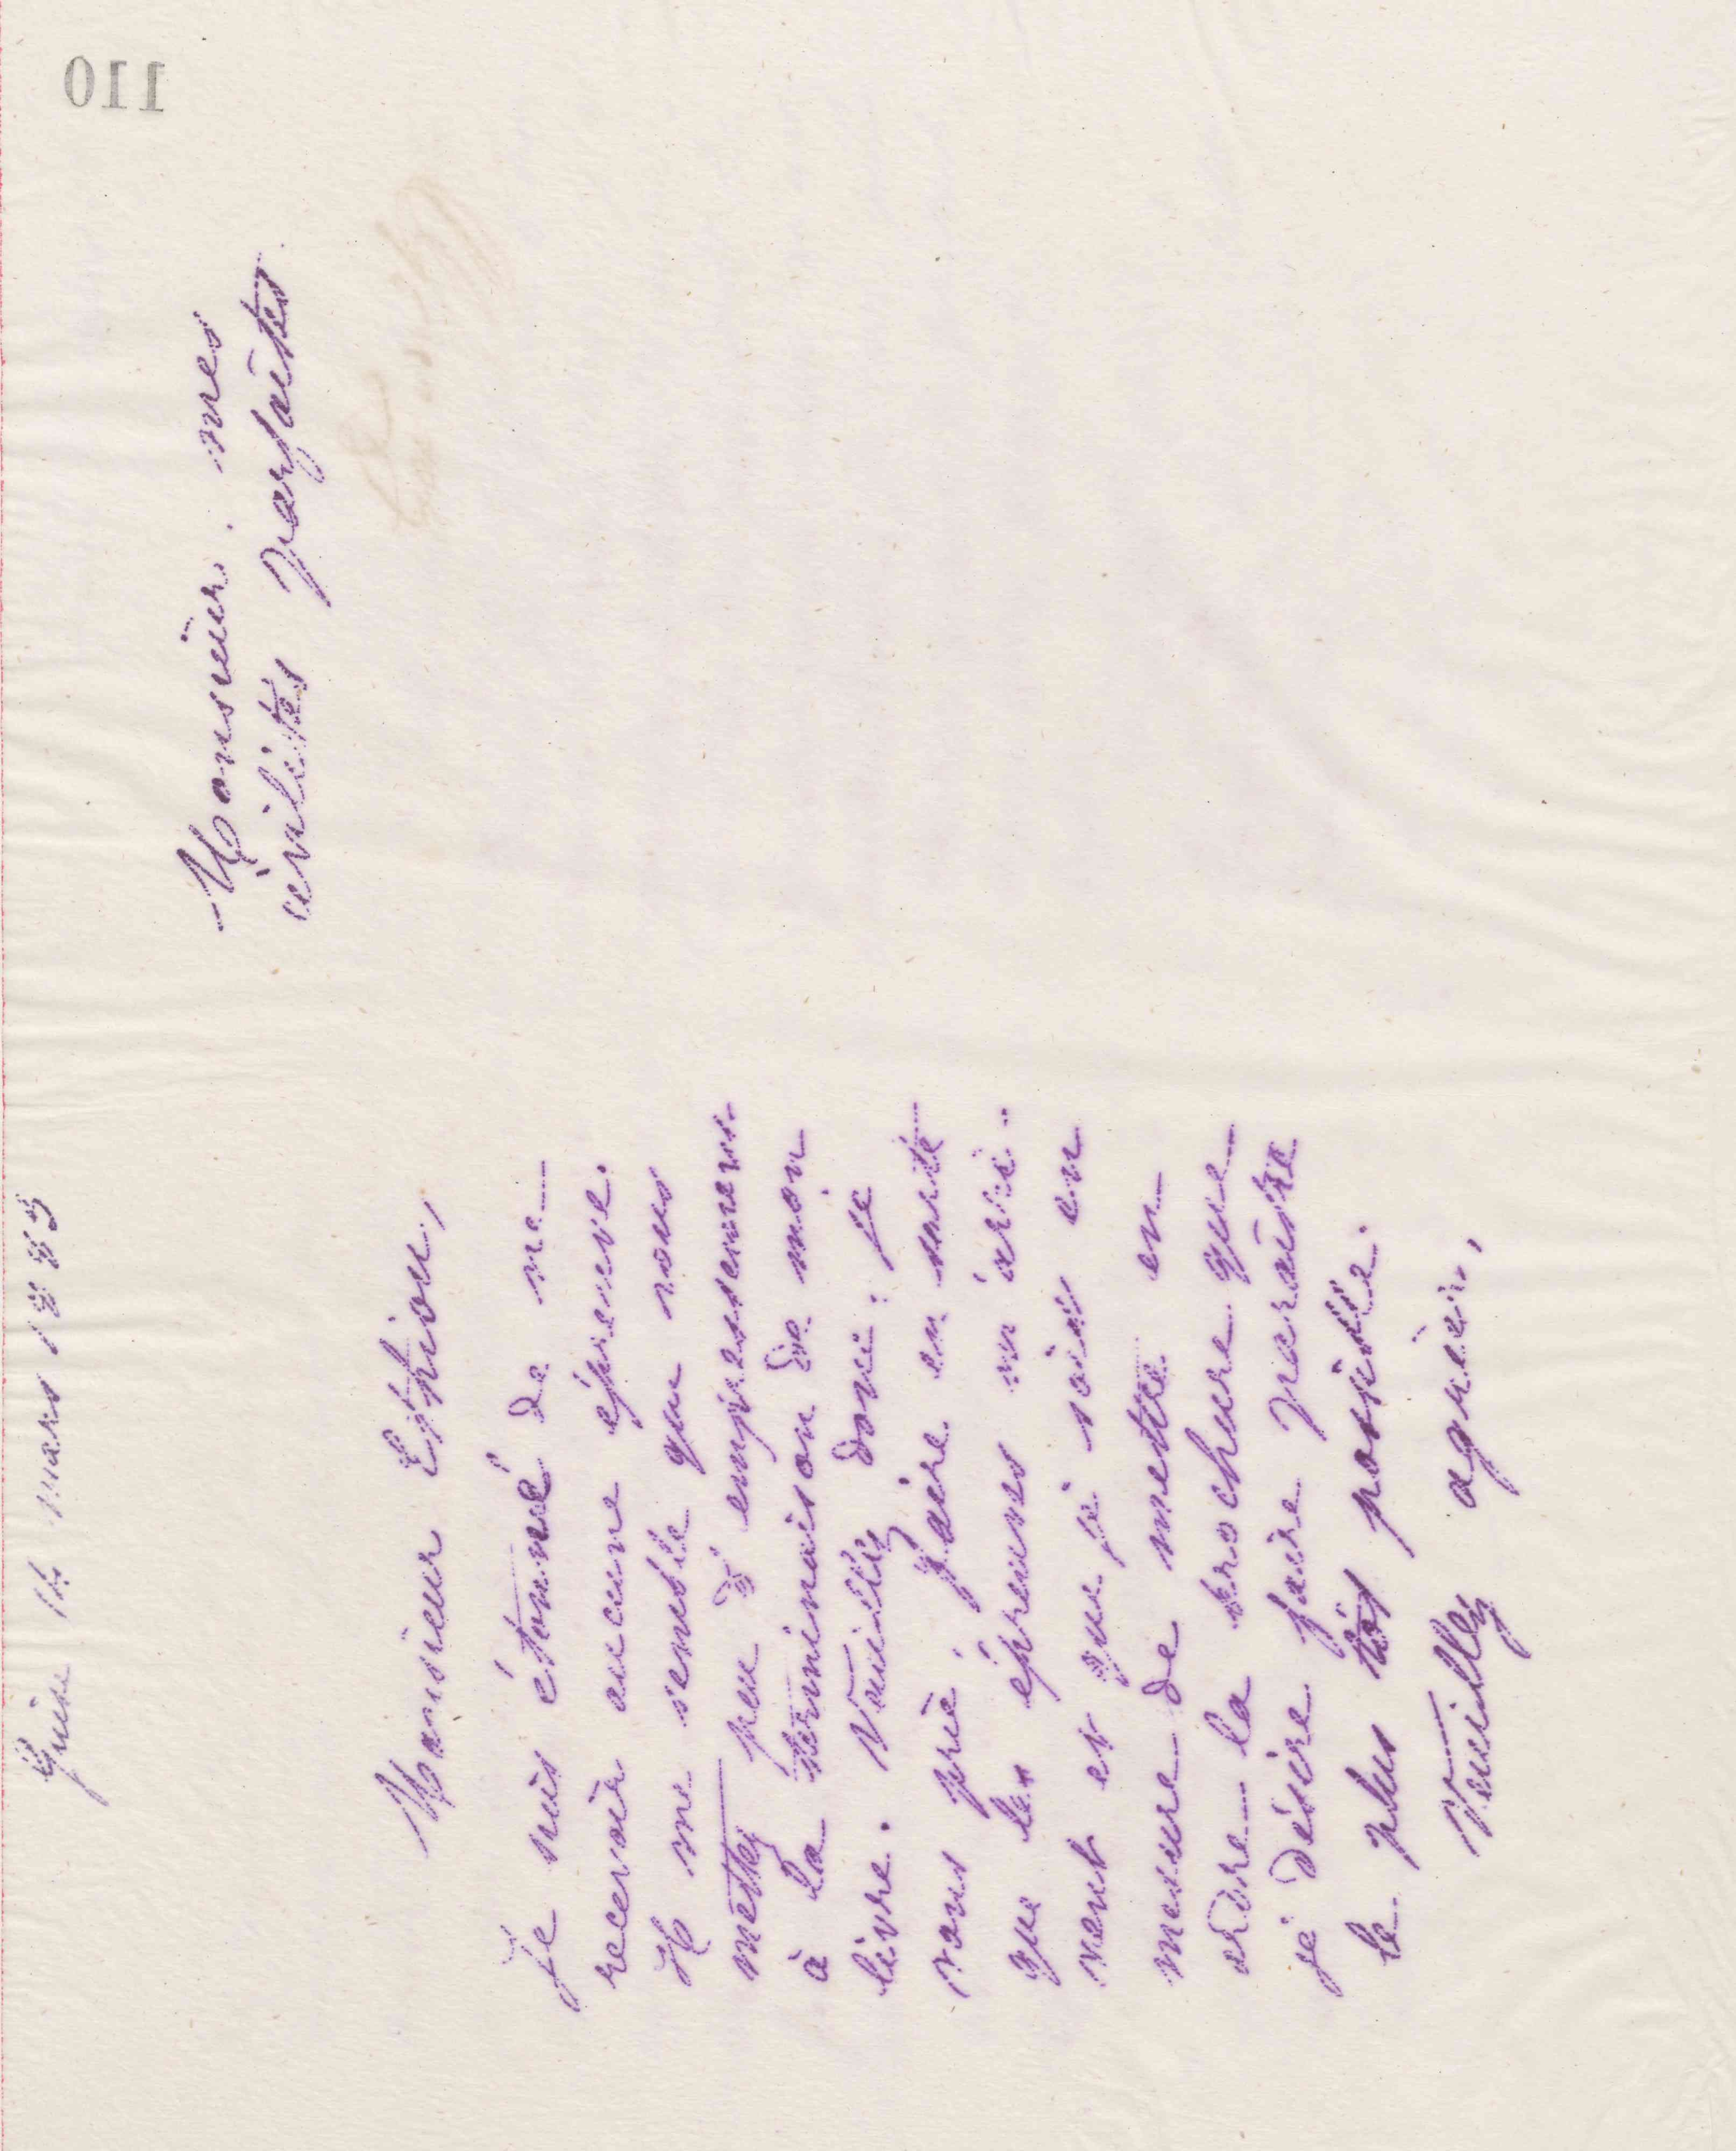 110
Guise 14 mars 1885
Monsieur Ethiou,
Je suis étonné de ne
recevoir aucune épreuve.
Il me semble que vous
mettez peu d'empressement
à la terminaison de mon
livre. Veuillez donc, je
vous prie, faire en sorte
que les épreuves m'arri-
vent et que je sois en
mesure de mettre en
ordre la brochure que
je désire faire paraître
le plus tôt possible.
Veuillez agréer,
Monsieur, mes
civilités parfaites